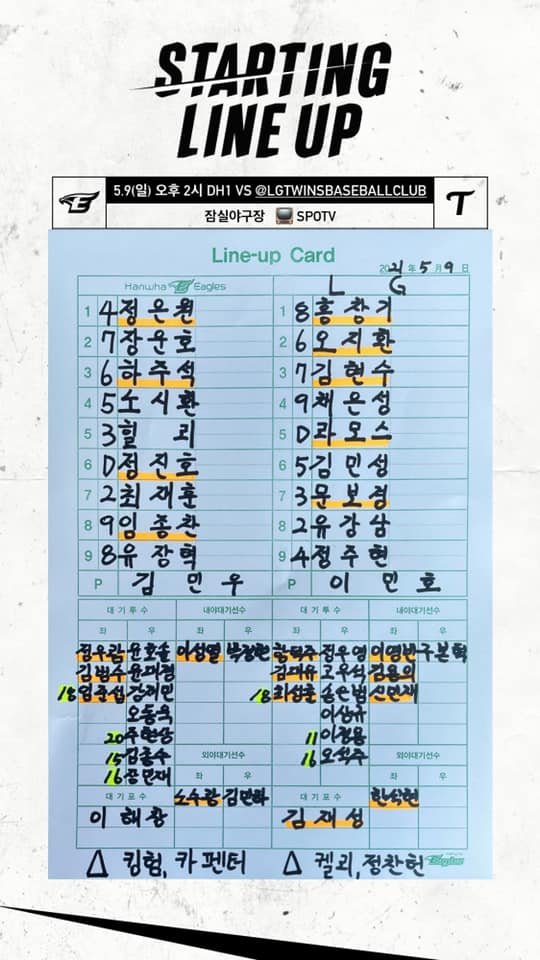 STARTING
LINE UP
5.9(일) 오후 2시 DH1 VS @LGTWINSBASEBALLCLUB
잠실야구장 SPOTV
Line-up Card
2021 年 5 月 9 日
Hanwha Eagles L G
1 4 정은원 1 8 홍창기
2 7 장운호 2 6 오지환
3 6 하주석 3 7 김현수
4 5 노시환 4 9 채은성
5 3 힐리 5 D 라모스
6 D 정진호 6 5 김민성
7 2 최재훈 7 3 문보경
8 9 임종찬 8 2 유강남
9 8 유장혁 9 4 정주현
P 김민우 P 이민호
대기투수 내야대기선수 대기투수 내야대기선수
좌 우 좌 우 좌 우 좌 우
정우람 윤호솔 이성열 박정현 함덕주 정우영 이영빈 구본혁
김범수 윤대경 김대유 고우석 김용의
18 임준섭 강재민 18 최성훈 송은범 신민재
오동욱 이상규
20 주현상 11 이정용
15 김종수 외야대기선수 16 오석주 외야대기선수
16 좌 우 좌 우
대기포수 노수광 김민하 대기포수 한석현
이해창 김재성
△ 킹험, 카펜터 △ 켈리, 정찬헌
Eagles